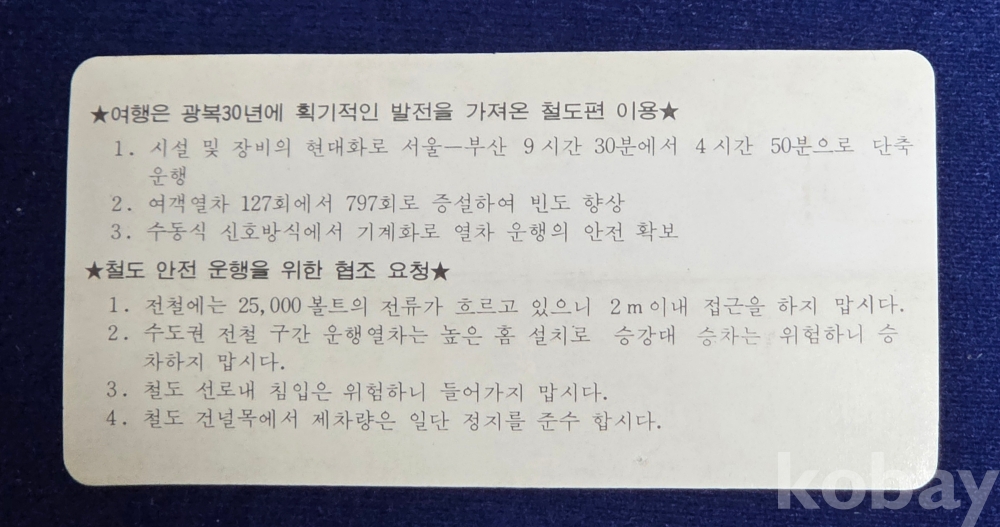 ★여행은 광복30년에 획기적인 발전을 가져온 철도편 이용★
1. 시설 및 장비의 현대화로 서울—부산 9시간 30분에서 4시간 50분으로 단축
운행
2. 여객열차 127회에서 797회로 증설하여 빈도 향상
3. 수동식 신호방식에서 기계화로 열차 운행의 안전 확보
★철도 안전 운행을 위한 협조 요청★
1. 전철에는 25,000볼트의 전류가 흐르고 있으니 2m이내 접근을 하지 맙시다.
2. 수도권 전철 구간 운행열차는 높은 홈 설치로 승강대 승차는 위험하니 승
차하지 맙시다.
3. 철도 선로내 침입은 위험하니 들어가지 맙시다.
4. 철도 건널목에서 제차량은 일단 정지를 준수 합시다.
kobay